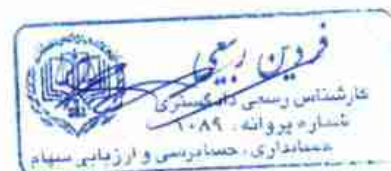 فردین ربیعی
کارشناس رسمی دادگستری
شماره پروانه: ۱۰۸۹
حسابداری، حسابرسی و ارزیابی سهام